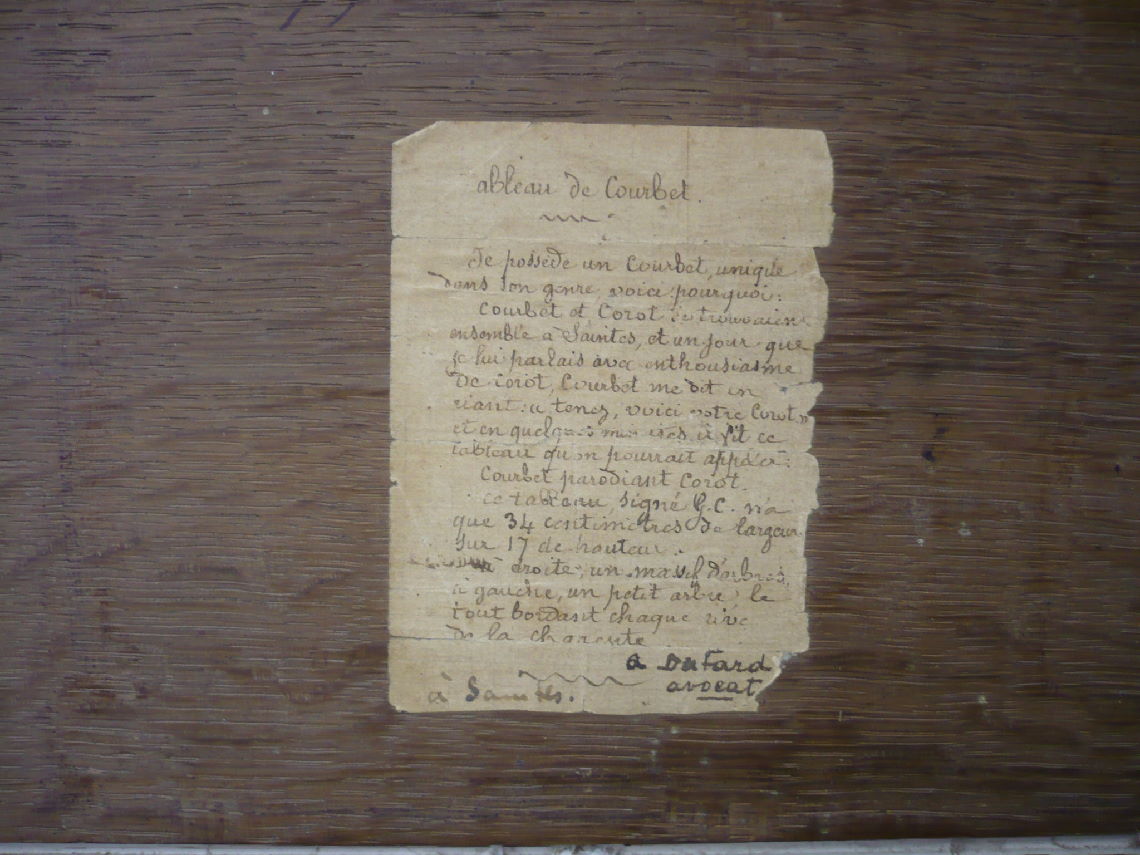 ableau de Courbet.
Je possède un Courbet, unique
dans son genre, voici pourquoi:
Courbet et Corot se trouvaient
ensemble à Saintes, et un jour que
je lui parlais avec enthousiasme
de Corot, Courbet me dit en
riant: « tenez, voici votre Corot »
et en quelques minutes il fit ce
tableau qu'on pourrait appeler:
Courbet parodiant Corot.
Ce tableau, signé G.C. n'a
que 34 centimètres de largeur
sur 17 de hauteur.
à droite, un massif d'arbres,
à gauche, un petit arbre; le
tout bordant chaque rive
de la Charente
a Dufard
avocat
à Saintes.